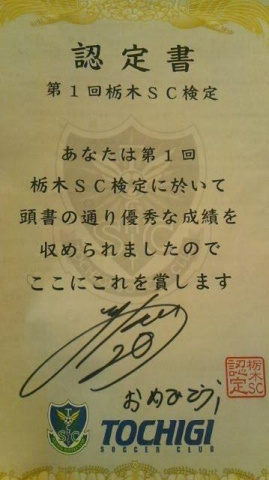 認定書
第1回栃木SC検定
あなたは第1回
栃木SC検定に於いて
頭書の通り優秀な成績を
収められましたので
ここにこれを賞します
20
おめでとう!
栃木SC
認定
TOCHIGI
SOCCER CLUB